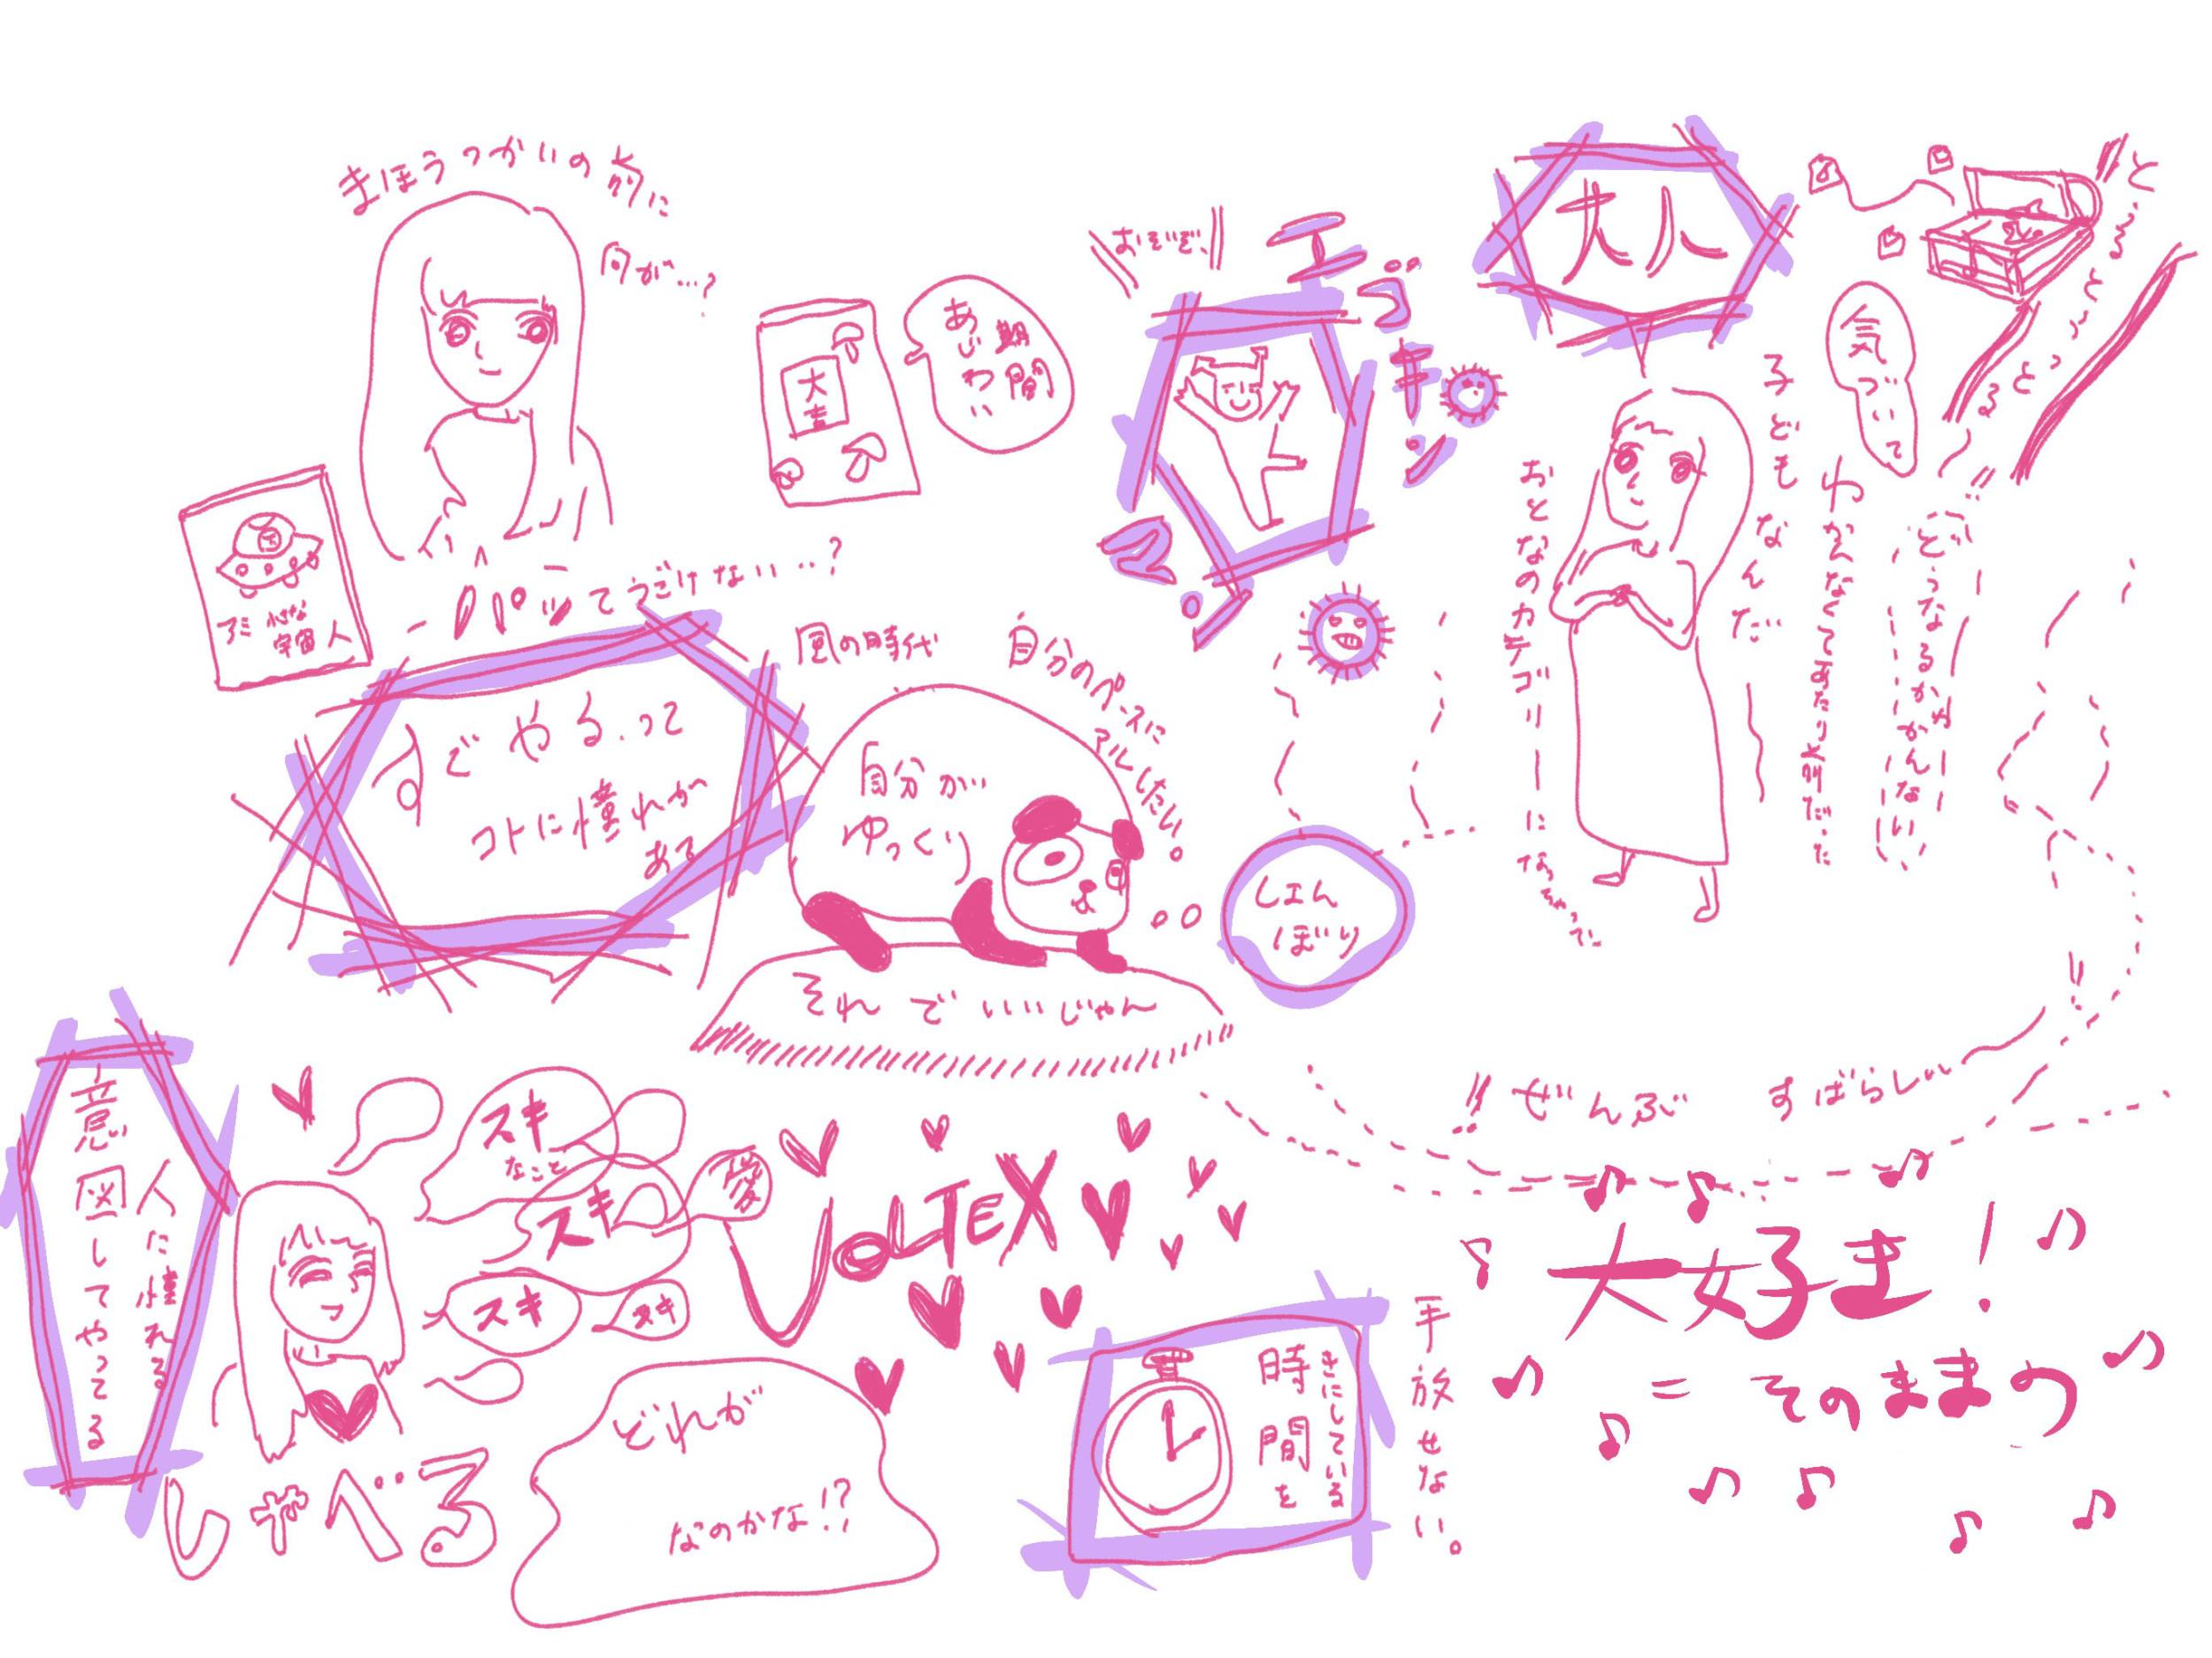 まほうつかいの前に
何が…?
大吉
あいまい
期間
アミ 小さな
宇宙人
パッてうごけない…?
すぐやるって
コトに憧れが
ある
風の時代
自分のペースに
したい。
自分が
ゆっくり
それでいいじゃん
大人
気づいて
子どもなんだ
わかんなくてあたり前だった
どうなるかわかんない
おとなのカテゴリーになっちゃって
しょん
ぼり
!! ぜんぶ すばらしい
意図してやってる
人に憧れる
スキ
なこと
スキ
スキ
スキ
愛
VoLTEX
しゃべる
どれが
なのかな!?
きにしている
時間を
手放せない。
大好き!
= そのままの